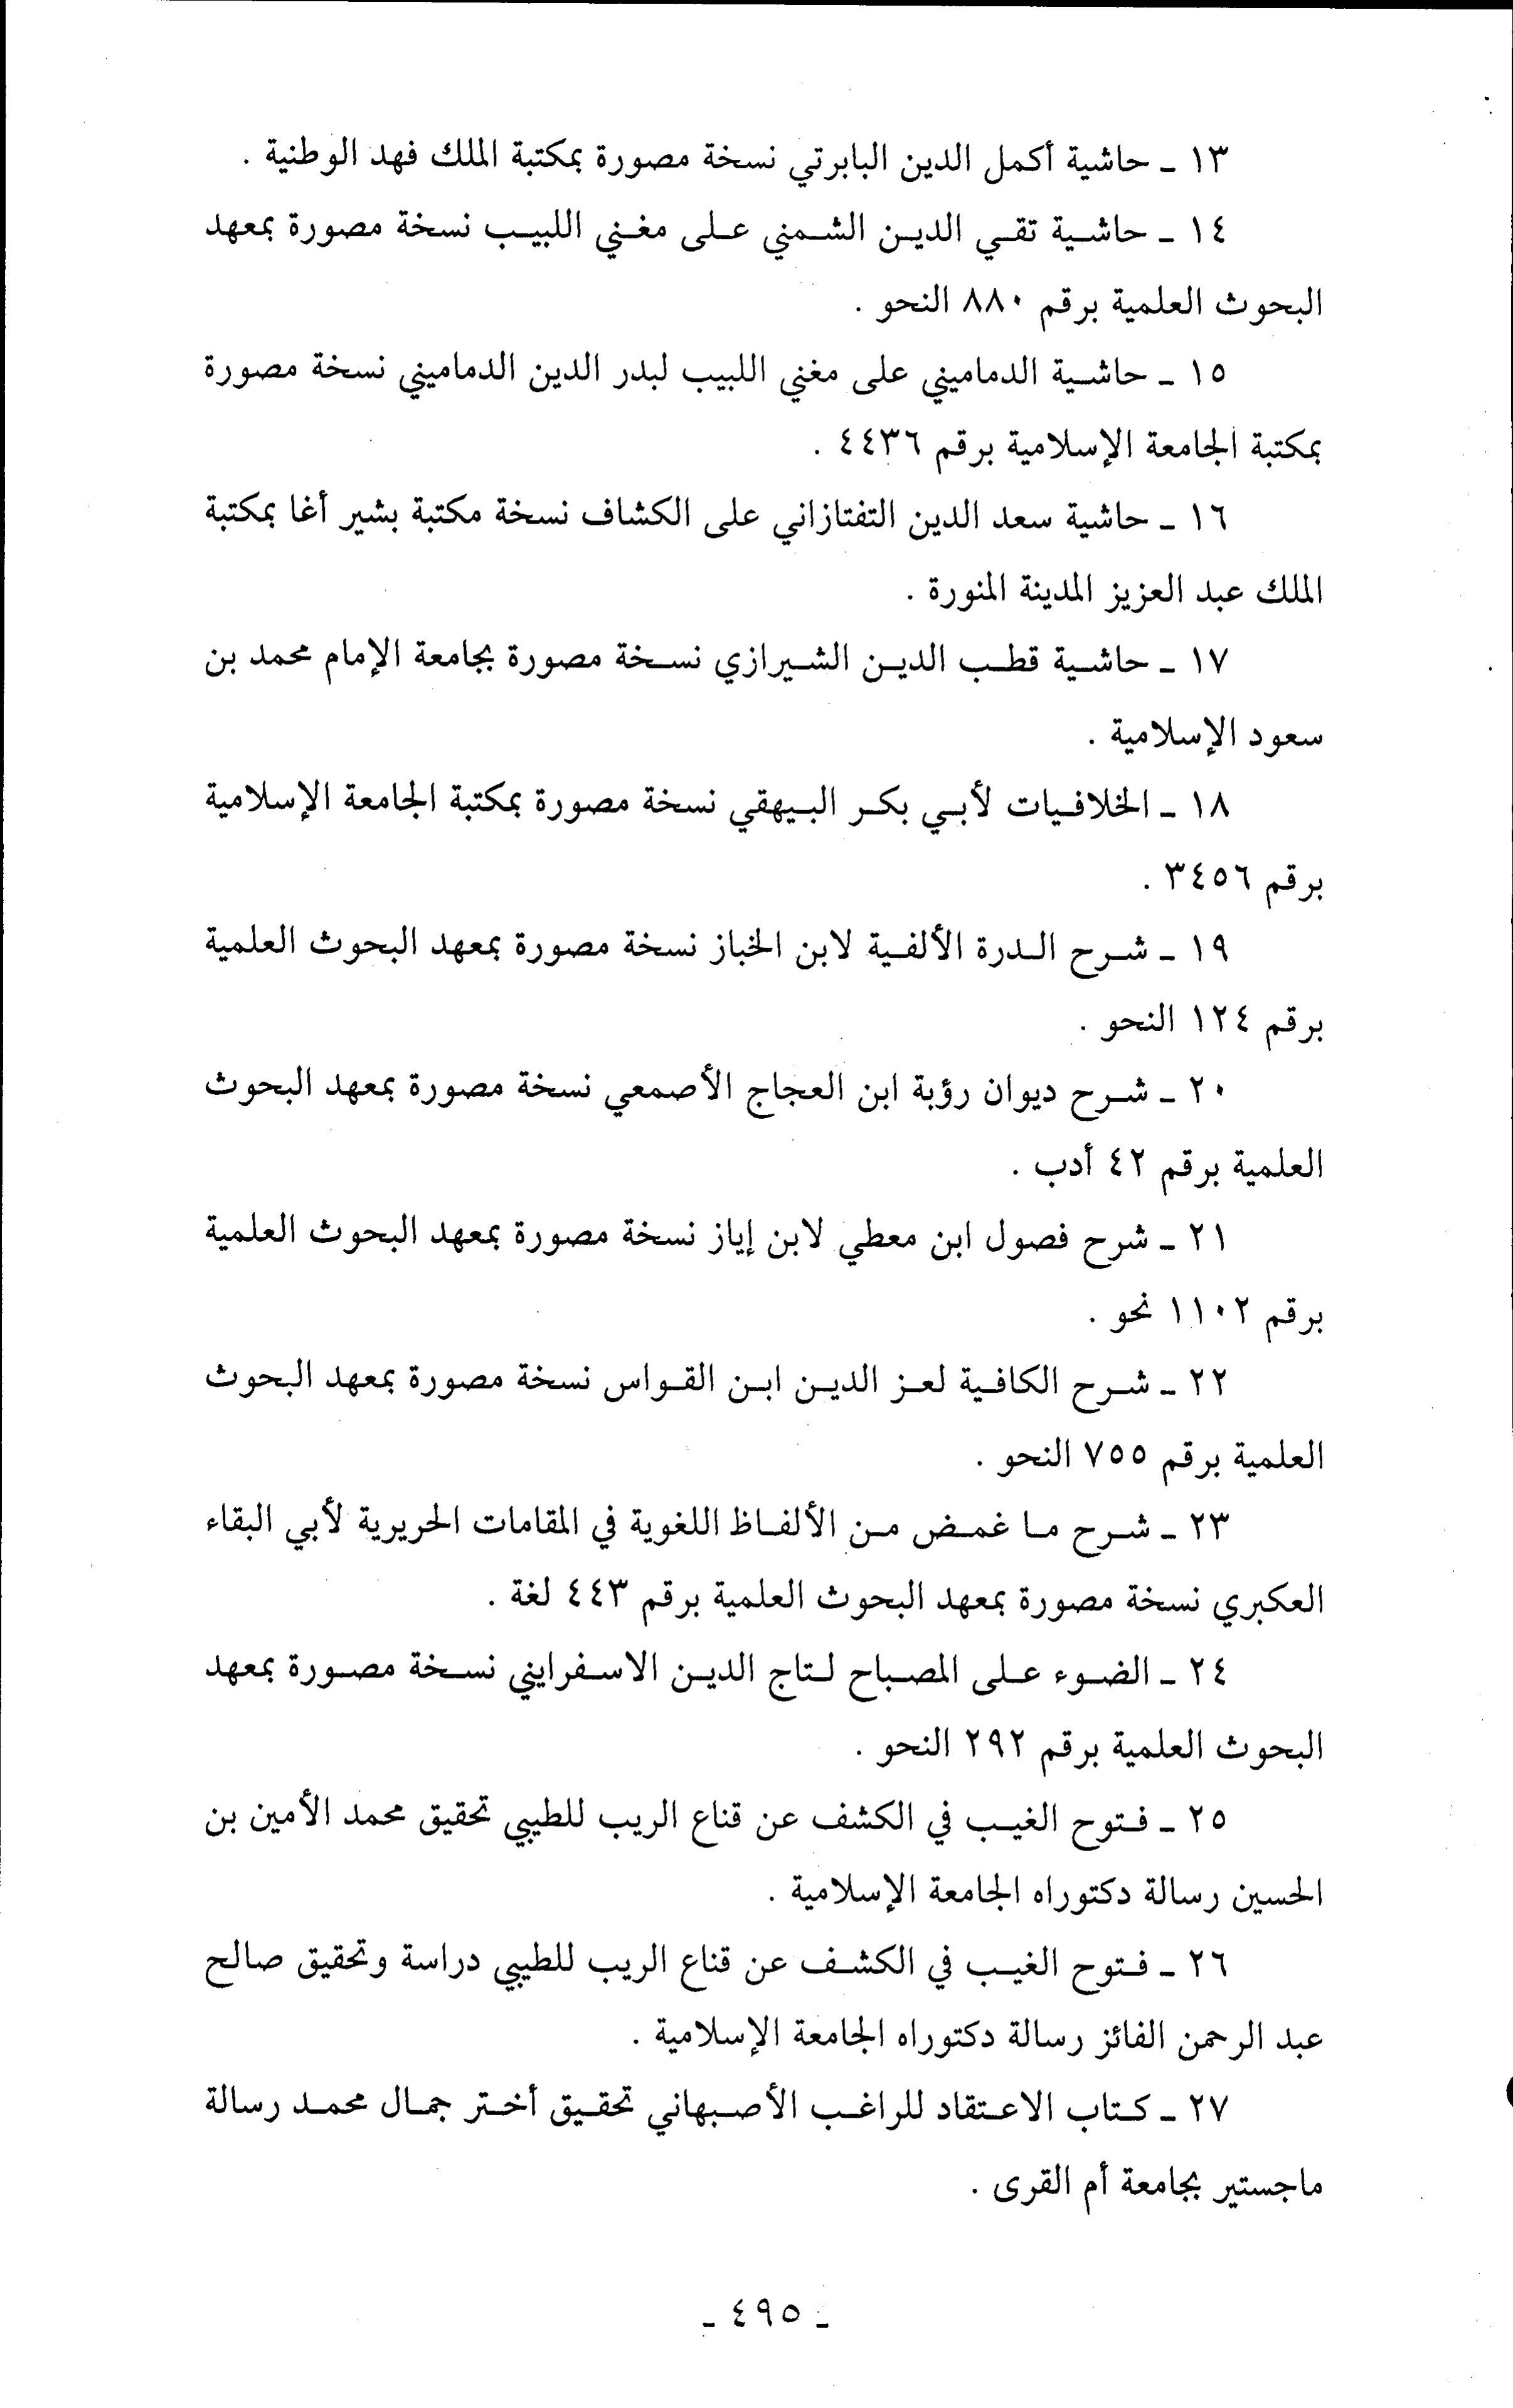 ١٣ ـ حاشية أكمل الدين البابرتي نسخة مصورة بمكتبة الملك فهد الوطنية .
١٤ ـ حاشية تقي الدين الشمني على مغني اللبيب نسخة مصورة بمعهد
البحوث العلمية برقم ٨٨٠ النحو .
١٥ ـ حاشية الدماميني على مغني اللبيب لبدر الدين الدماميني نسخة مصورة
بمكتبة الجامعة الإسلامية برقم ٤٤٣٦ .
١٦ ـ حاشية سعد الدين التفتازاني على الكشاف نسخة مكتبة بشير أغا بمكتبة
الملك عبد العزيز المدينة المنورة .
١٧ ـ حاشية قطب الدين الشيرازي نسخة مصورة بجامعة الإمام محمد بن
سعود الإسلامية .
١٨ ـ الخلافيات لأبي بكر البيهقي نسخة مصورة بمكتبة الجامعة الإسلامية
برقم ٣٤٥٦ .
١٩ ـ شرح الدرة الألفية لابن الخباز نسخة مصورة بمعهد البحوث العلمية
برقم ١٢٤ النحو .
٢٠ ـ شرح ديوان رؤبة ابن العجاج الأصمعي نسخة مصورة بمعهد البحوث
العلمية برقم ٤٢ أدب .
٢١ ـ شرح فصول ابن معطي لابن إياز نسخة مصورة بمعهد البحوث العلمية
برقم ١١٠٢ نحو .
٢٢ ـ شرح الكافية لعز الدين ابن القواس نسخة مصورة بمعهد البحوث
العلمية برقم ٧٥٥ النحو .
٢٣ ـ شرح ما غمض من الألفاظ اللغوية في المقامات الحريرية لأبي البقاء
العكبري نسخة مصورة بمعهد البحوث العلمية برقم ٤٤٣ لغة .
٢٤ ـ الضوء على المصباح لتاج الدين الاسفرايني نسخة مصورة بمعهد
البحوث العلمية برقم ٢٩٢ النحو .
٢٥ ـ فتوح الغيب في الكشف عن قناع الريب للطيبي تحقيق محمد الأمين بن
الحسين رسالة دكتوراه الجامعة الإسلامية .
٢٦ ـ فتوح الغيب في الكشف عن قناع الريب للطيبي دراسة وتحقيق صالح
عبد الرحمن الفائز رسالة دكتوراه الجامعة الإسلامية .
٢٧ ـ كتاب الاعتقاد للراغب الأصبهاني تحقيق أختر جمال محمد رسالة
ماجستير بجامعة أم القرى .
ـ ٤٩٥ ـ